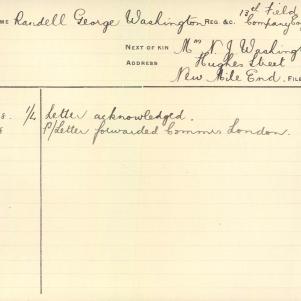 ME Randell George Washington REG. &C. 13th Field
Company Eng
NEXT OF KIN Mrs N. J. Washing
ADDRESS Hughes Street
New Mile End. FILE
8. 1/4 Letter acknowledged.
8 P/Letter forwarded Commrs London.